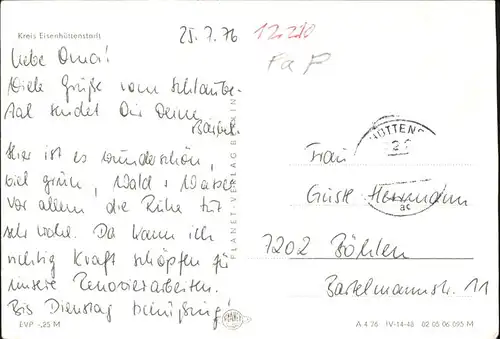 Kreis Eisenhüttenstadt
25.7.76
12.220
Pa P
Liebe Oma!
Viele Grüße vom Schlaube-
Tal sendet Dir Deine
Bärbel.
Hier ist es wunderschön,
viel grün, Wald + Wasser
vor allem die Ruhe tut
sehr wohl. Da kann ich
richtig Kraft schöpfen für
unsere Renovierarbeiten.
Bis Dienstag
EVP -,25 M
PLANET-VERLAG BERLIN
HÜTTENS
Frau
Gusti Herrmann
7202 Böhlen
Bartelmannstr. 11
A 4 76 IV-14-48 02 05 06 095 M